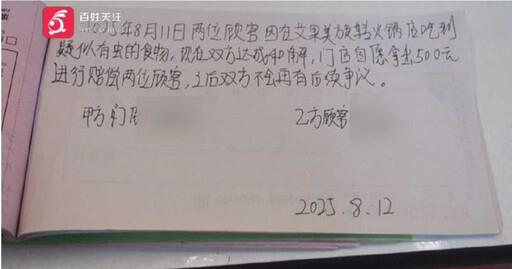 百姓关注
2025年8月11日两位顾客因在艾果美旋转火锅店吃到
疑似有虫的食物，现在双方达成和解，门店自愿拿出500元
进行赔偿两位顾客，之后双方不会再有后续争议。
甲方 门店
乙方顾客
2025.8.12